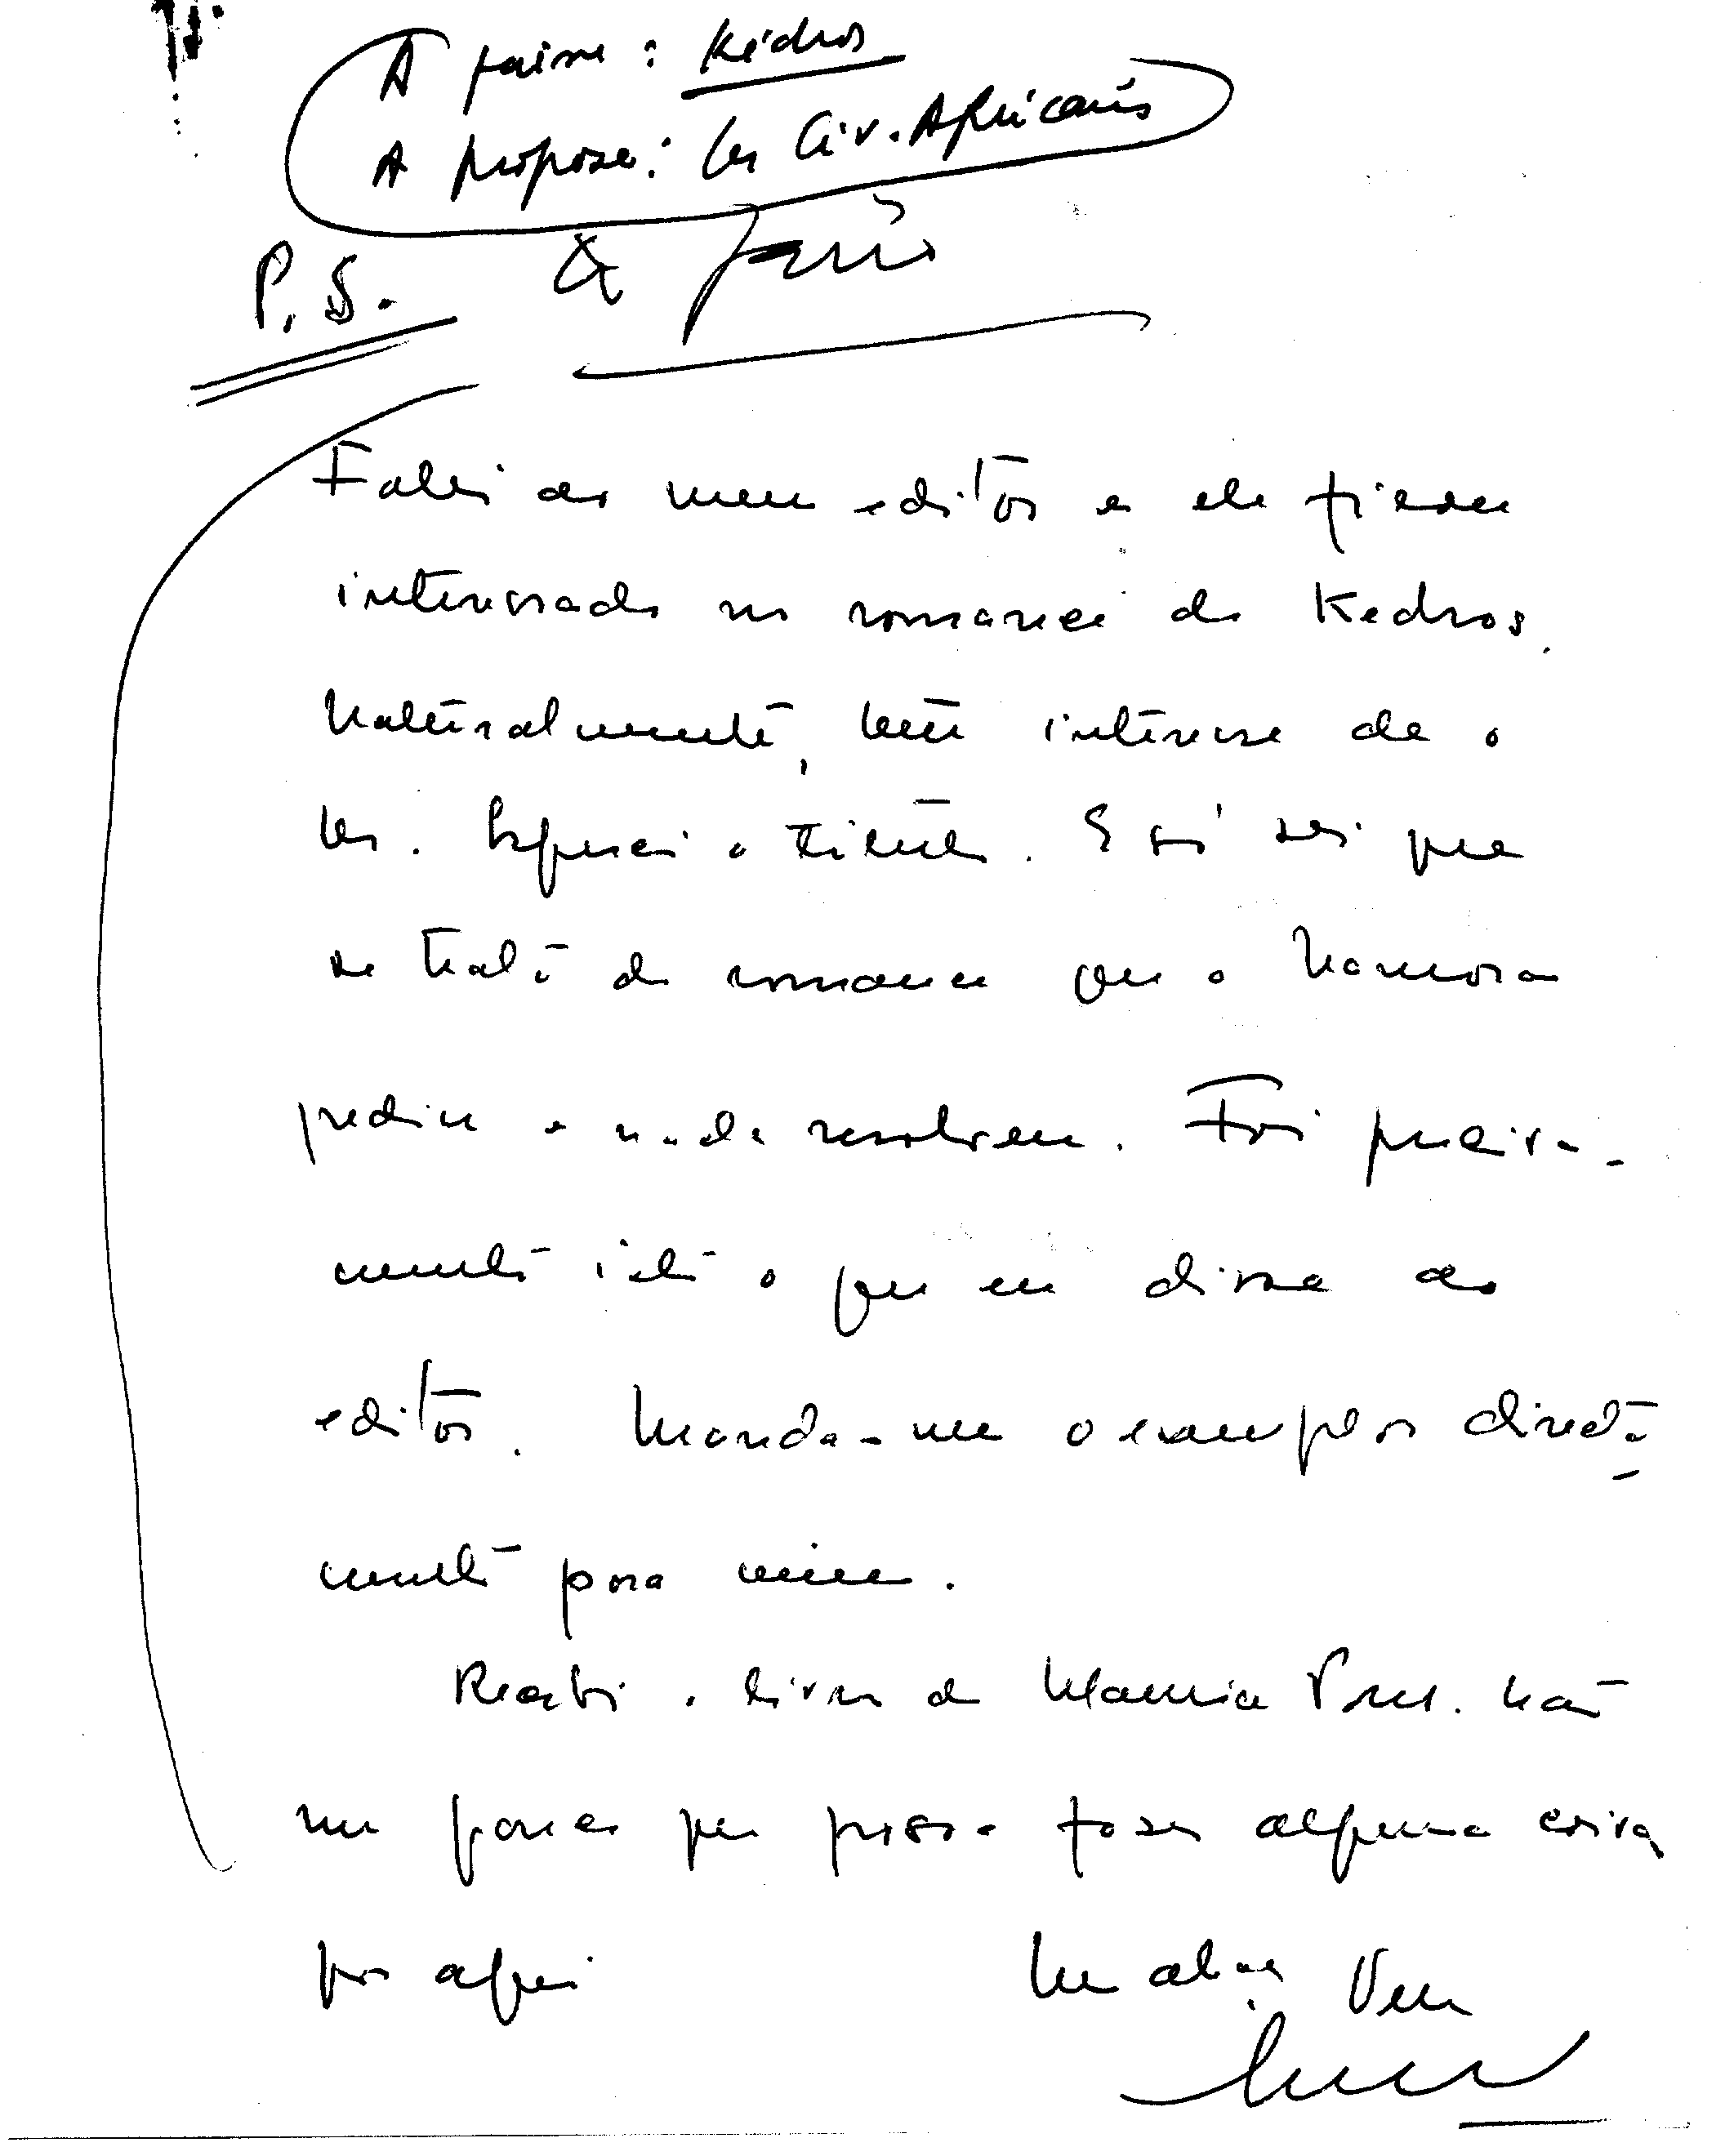 A faire : Kédros
A proposer : les Civ. Africaines
P.S.
Falei ao meu editor e ele ficou
interessado no romance do Kedros.
Naturalmente, tem interesse de o
ler. Esqueci o título. E só sei que
se trata do romance que o Namora
pediu e nada resolveu. Foi precisa-
mente isto o que eu disse ao
editor. Manda-me o exemplar directa-
mente para mim.
Recebi o livro de Mamia Não
me parece que possa fazer alguma coisa
por aqui Um abraço